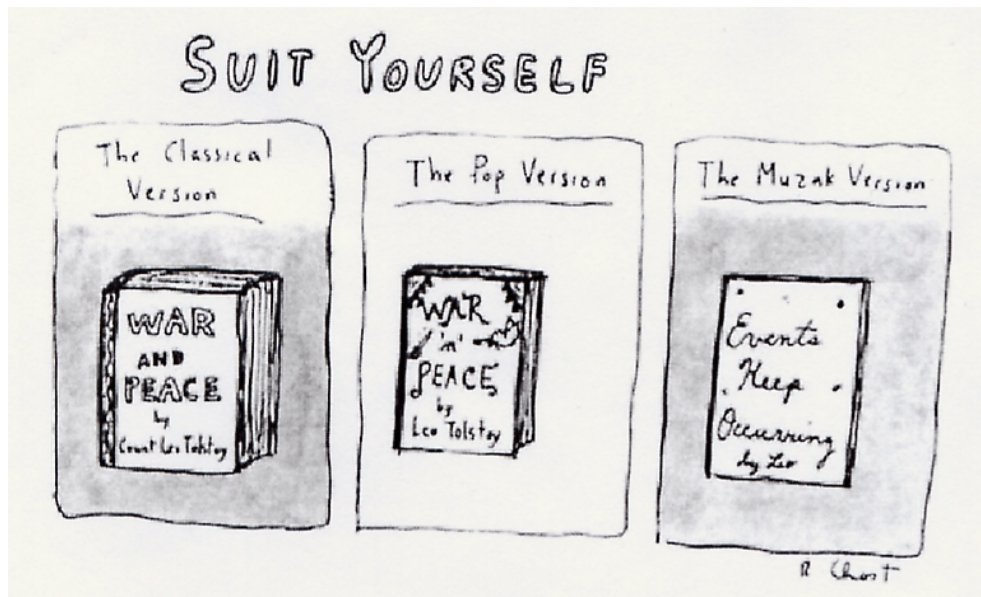 SUIT YOURSELF
The Classical
Version
WAR
AND
PEACE
by
Count Leo Tolstoy
The Pop Version
WAR
'n'
PEACE
by
Leo Tolstoy
The Muzak Version
Events
Keep
Occurring
by Leo
R Chast